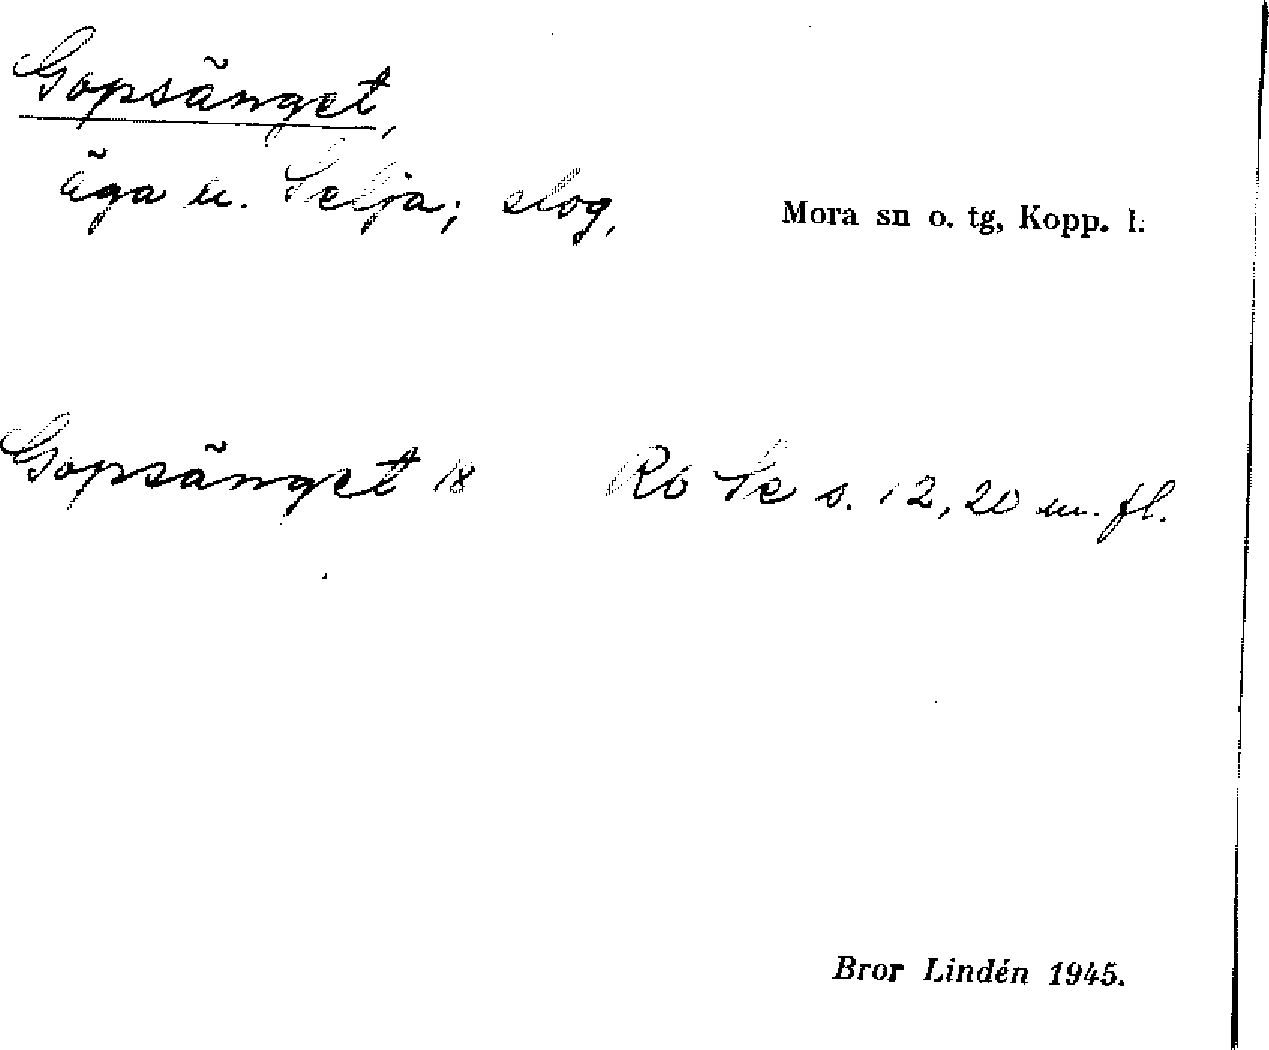 Gopsänget,
äga u. Selja; slog,
Mora sn o. tg, Kopp. l.
Gopsänget 18 Rö Se s. 12, 20 m. fl.
Bror Lindén 1945.